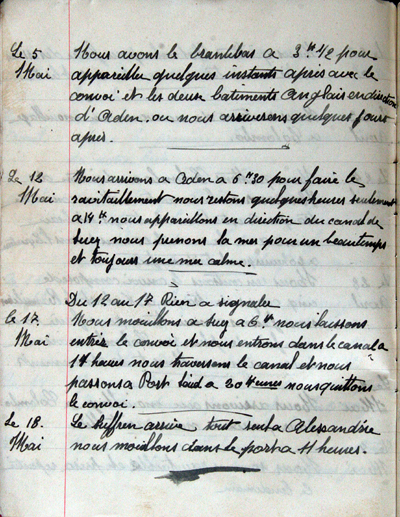 Le 5 Nous avons le branlebas a 3H 1/2 pour
Mai appareiller quelques instants après avec le
convoi et les deux batiments Anglais en direction
d'Aden. ou nous arriverons quelques jours
apres.
Le 12 Nous arrivons a Aden a 6H30 pour faire le
Mai ravitaillement nous restons quelques heures seulement
a 14H nous appareillons en direction du canal de
Suez nous prenons la mer pour un beau temps
et toujours une mer calme.
Du 12 au 17 Rien a signaler
le 17. Nous mouillons a Suez a 6H nous laissons
Mai entrer le convoi et nous entrons dans le canal a
heures nous traversons le canal et nous
passons a Port Saïd a 20 Heures nous quittons
le convoi.
Le 18. Le Suffren arrive tout seul a Alessandrie
Mai nous mouillons dans le port a 11 heures.